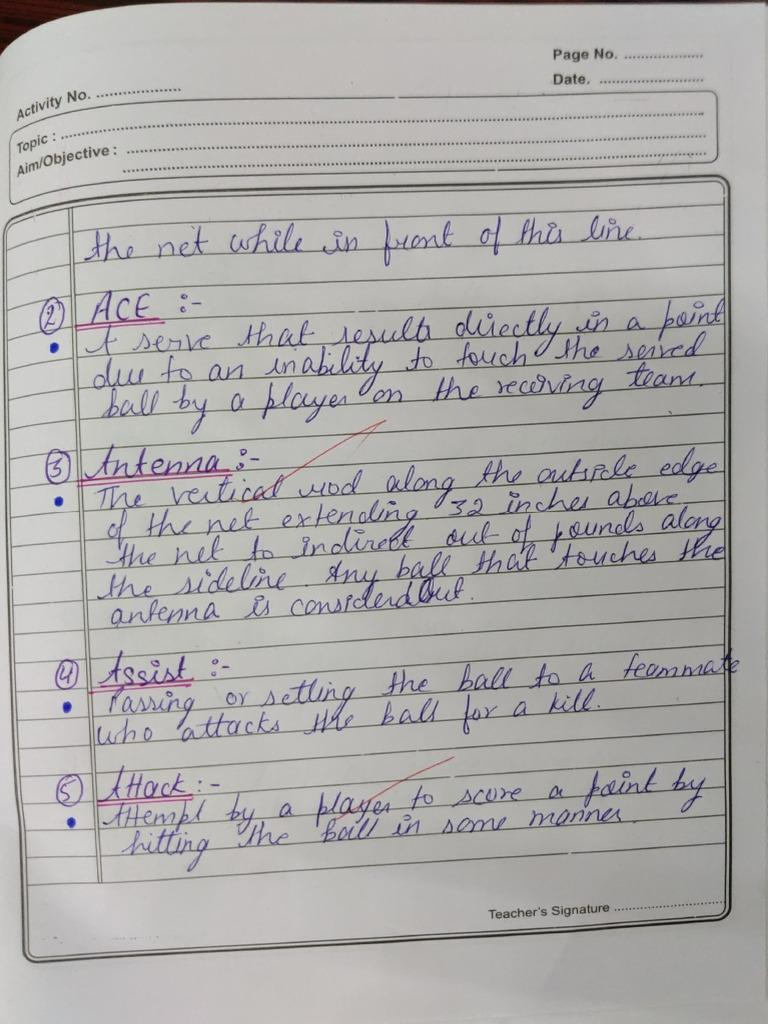 Page No. ....................
Date. ....................
Activity No. ....................
Topic : ....................
Aim/Objective : ....................
the net while in front of this line.
② ACE :-
• A serve that results directly in a point
due to an inability to touch the served
ball by a player on the receiving team.
③ Antenna :-
• The vertical rod along the outside edge
of the net extending 32 inches above
the net to indirect out of pounds along
the sideline. Any ball that touches the
antenna is considerd out.
④ Assist :-
• Passing or setting the ball to a teammate
who attacks the ball for a kill.
⑤ Attack :-
• Attempt by a player to score a point by
hitting the ball in some manner.
Teacher's Signature ....................